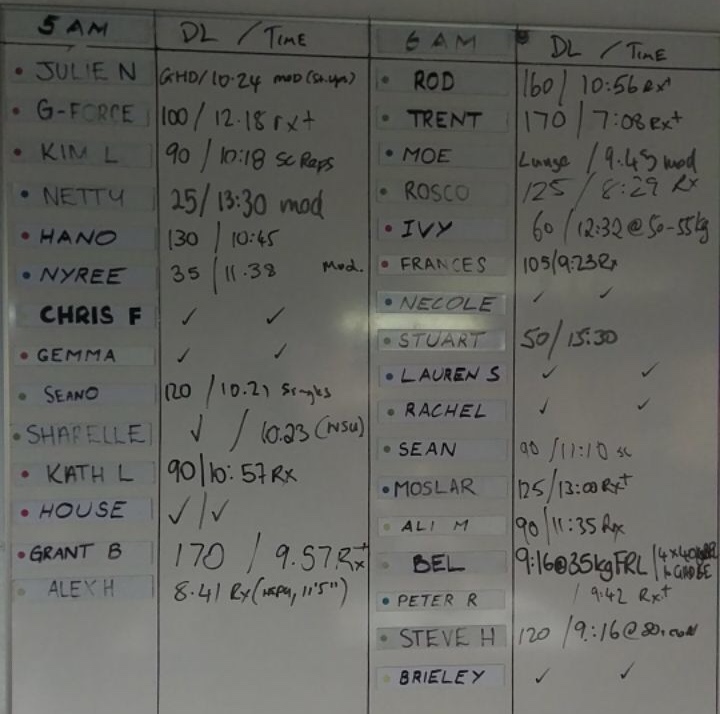 5 AM DL / TIME
JULIE N GHD/10.24 mod (sit.ups)
G-FORCE 100 / 12.18 rx+
KIM L 90 / 10:18 sc Reps
NETTY 25/ 13:30 mod
HANO 130 / 10:45
NYREE 35 / 11.38 Mod.
CHRIS F ✓ ✓
GEMMA ✓ ✓
SEANO 120 / 10.21 Singles
SHARELLE ✓ / 10.23 (NSU)
KATH L 90/10:57 RX
HOUSE ✓/✓
GRANT B 170 / 9.57 Rx+
ALEX H 8.41 Rx (HSPU, 11'5")
6 AM DL / TIME
ROD 160 / 10:56 Rx
TRENT 170 / 7:08 Rx+
MOE Lunge / 9.45 mod
ROSCO 125 / 8:29 Rx
IVY 60 / 12:32 @ 50-55kg
FRANCES 105/9:23 Rx
NECOLE ✓ ✓
STUART 50/ 15:30
LAUREN S ✓ ✓
RACHEL ✓ ✓
SEAN 90 / 11:10 sc
MOSLAR 125/13:00 Rx+
ALI M 90/11:35 Rx
BEL 9:16@35kgFRL
PETER R / 9:42 Rx+
STEVE H 120 / 9:16 @ 80.
BRIELEY ✓ ✓